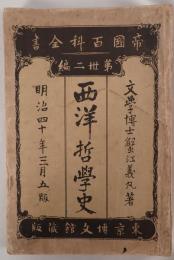 帝國百科全書
第卅二編
文學博士蟹江義丸著
西洋哲學史
明治四十年三月五版
東京博文館蔵版